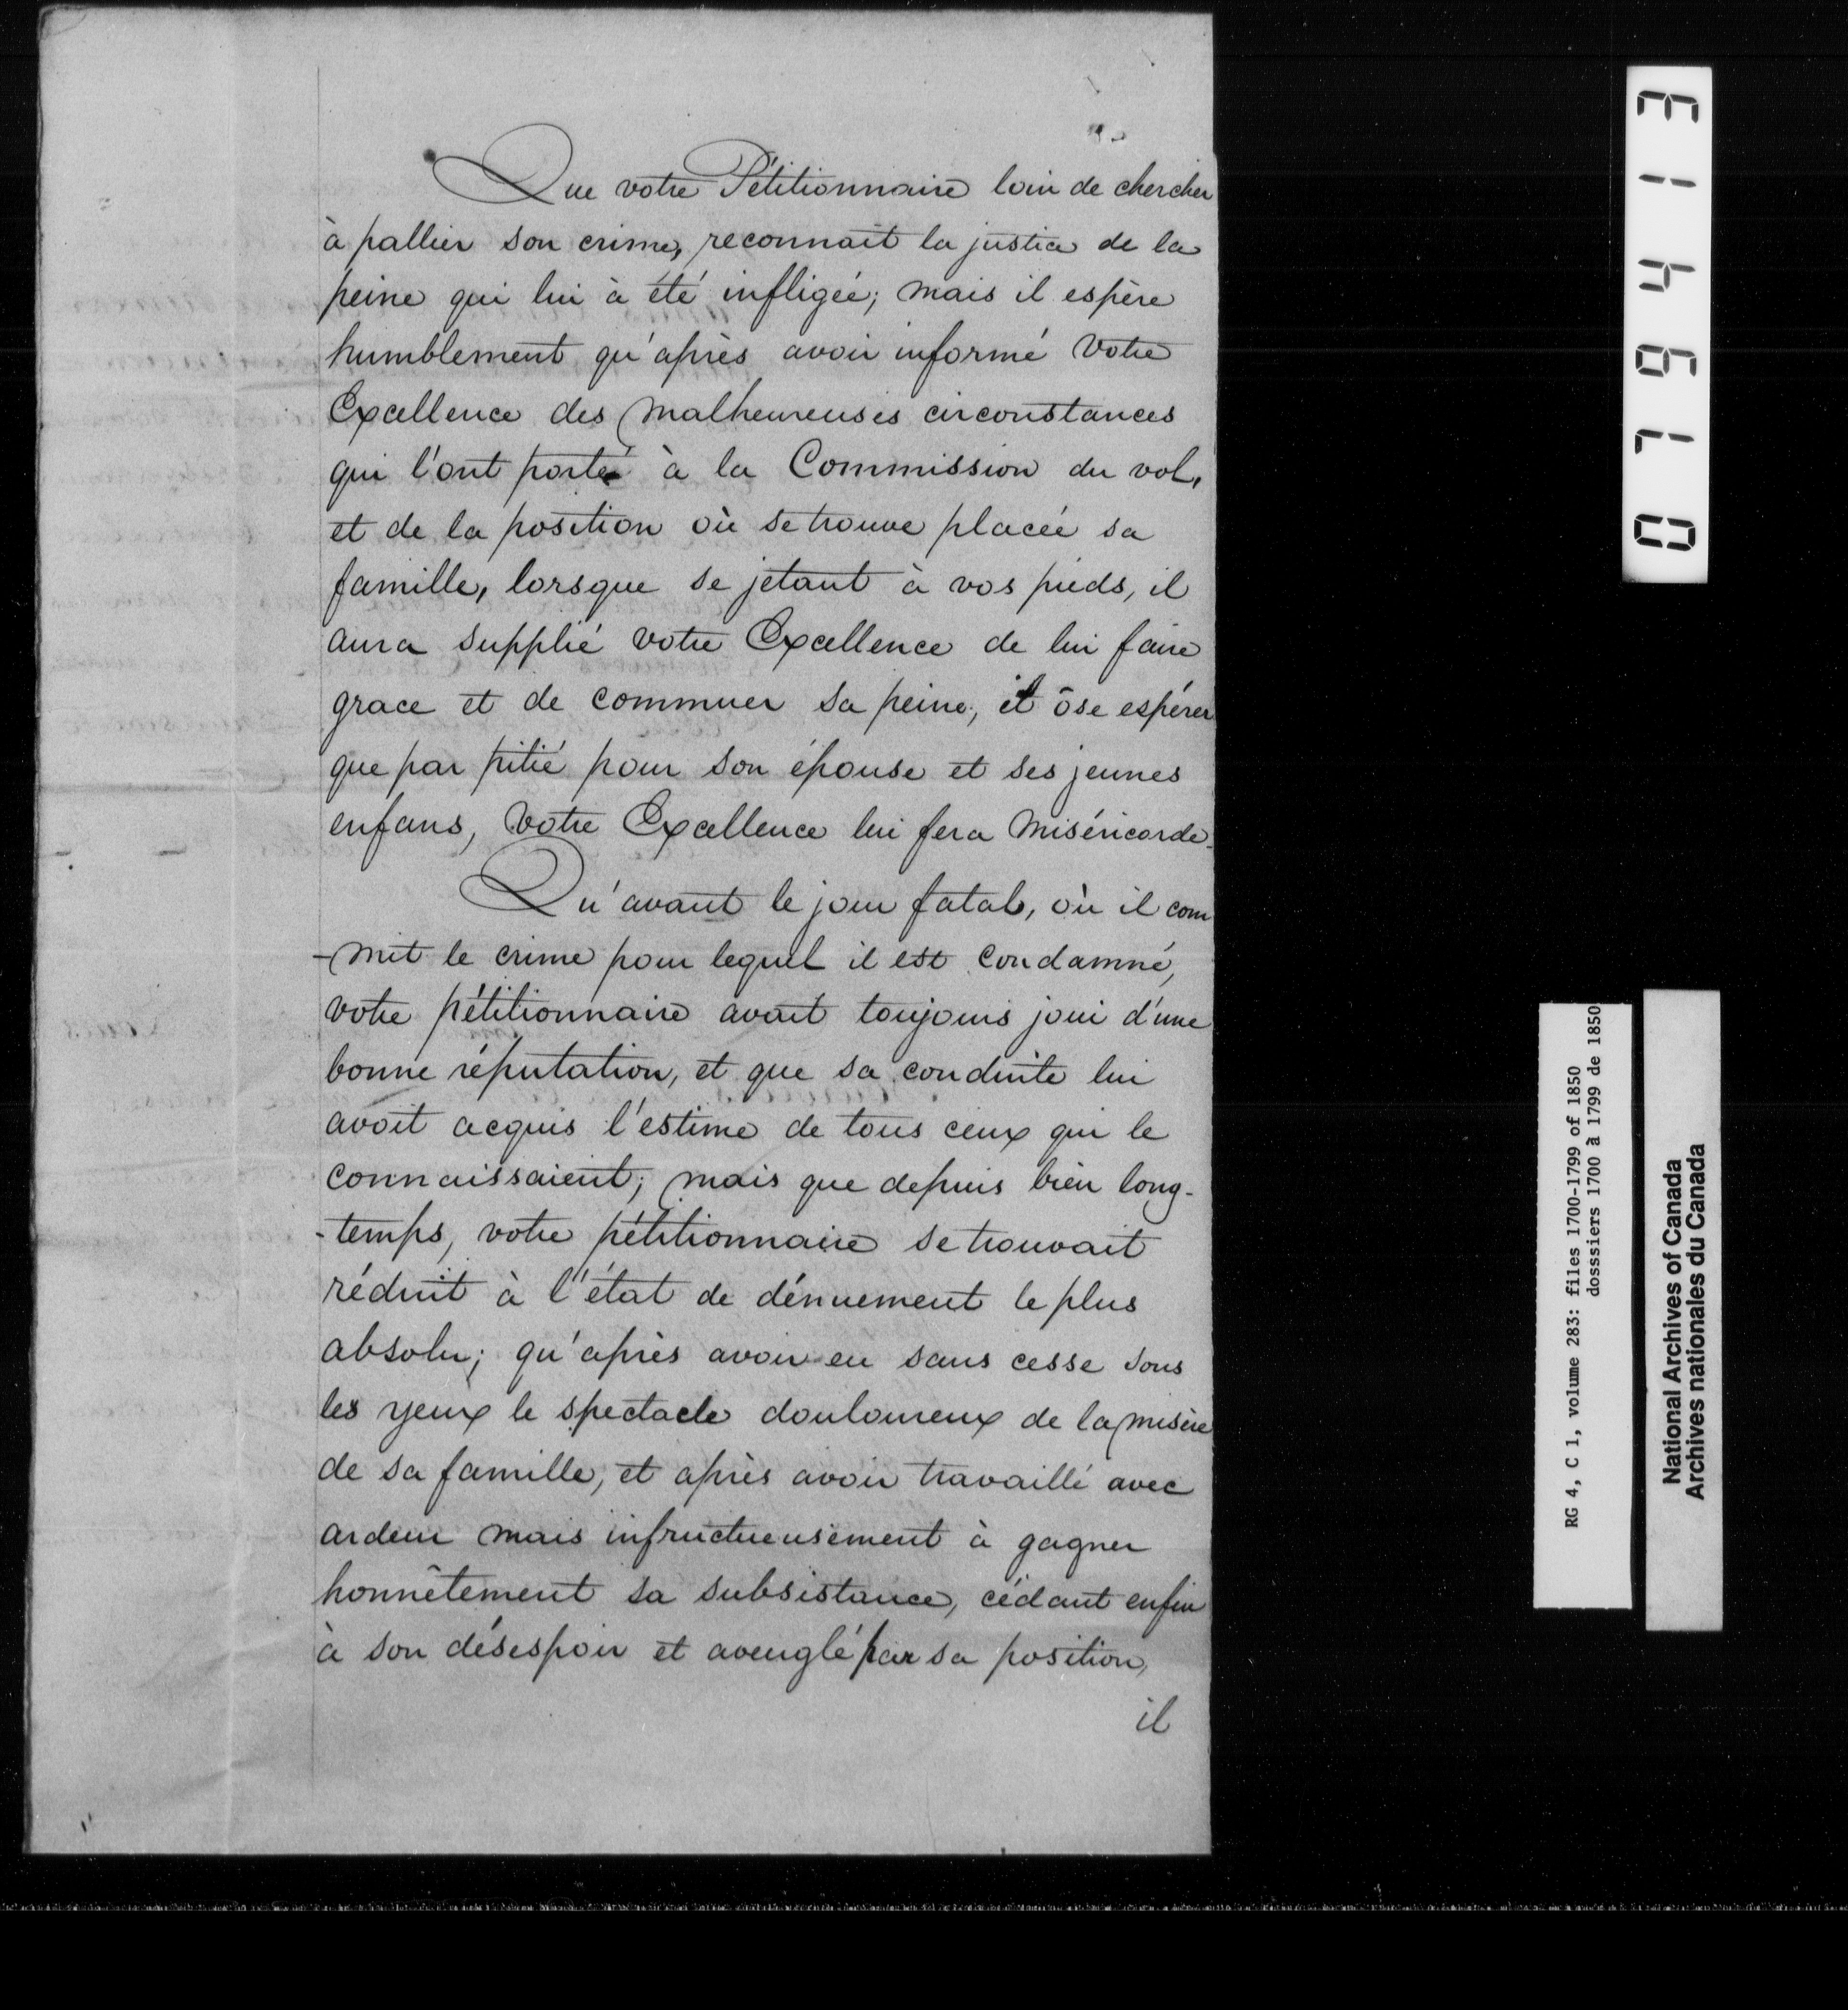 Que votre Pétitionnaire loin de chercher
à pallier son crime, reconnait la justice de la
peine qui lui à été infligée; mais il espère
humblement qu'après avoir informé Votre
Excellence des malheureuses circonstances
qui l'ont porté à la Commission du vol,
et de la position où se trouve placée sa
famille, lorsque se jetant à vos pieds, il
aura supplié votre Excellence de lui faire
grace et de commuer sa peine, il ôse espérer
que par pitié pour son épouse et ses jeunes
enfans, Votre Excellence lui fera Miséricorde.
Qu'avant le jour fatal, où il com
-mit le crime pour lequel il est condamné,
votre pétitionnaire avait toujours joui d'une
bonne réputation, et que sa conduite lui
avoit acquis l'estime de tous ceux qui le
connaissaient; mais que depuis bien long-
-temps, votre pétitionnaire se trouvait
réduit à l'état de dénuement le plus
absolu; qu'après avoir eu sans cesse sous
les yeux le spectacle douloureux de la misère
de sa famille, et après avoir travaillé avec
ardeur mais infructueusement à gagner
honnêtement sa subsistance, cédant enfin
à son désespoir et aveuglé par sa position,
il
079413
RG 4, C 1, volume 283: files 1700-1799 of 1850
dosssiers 1700 à 1799 de 1850
National Archives of Canada
Archives nationales du Canada